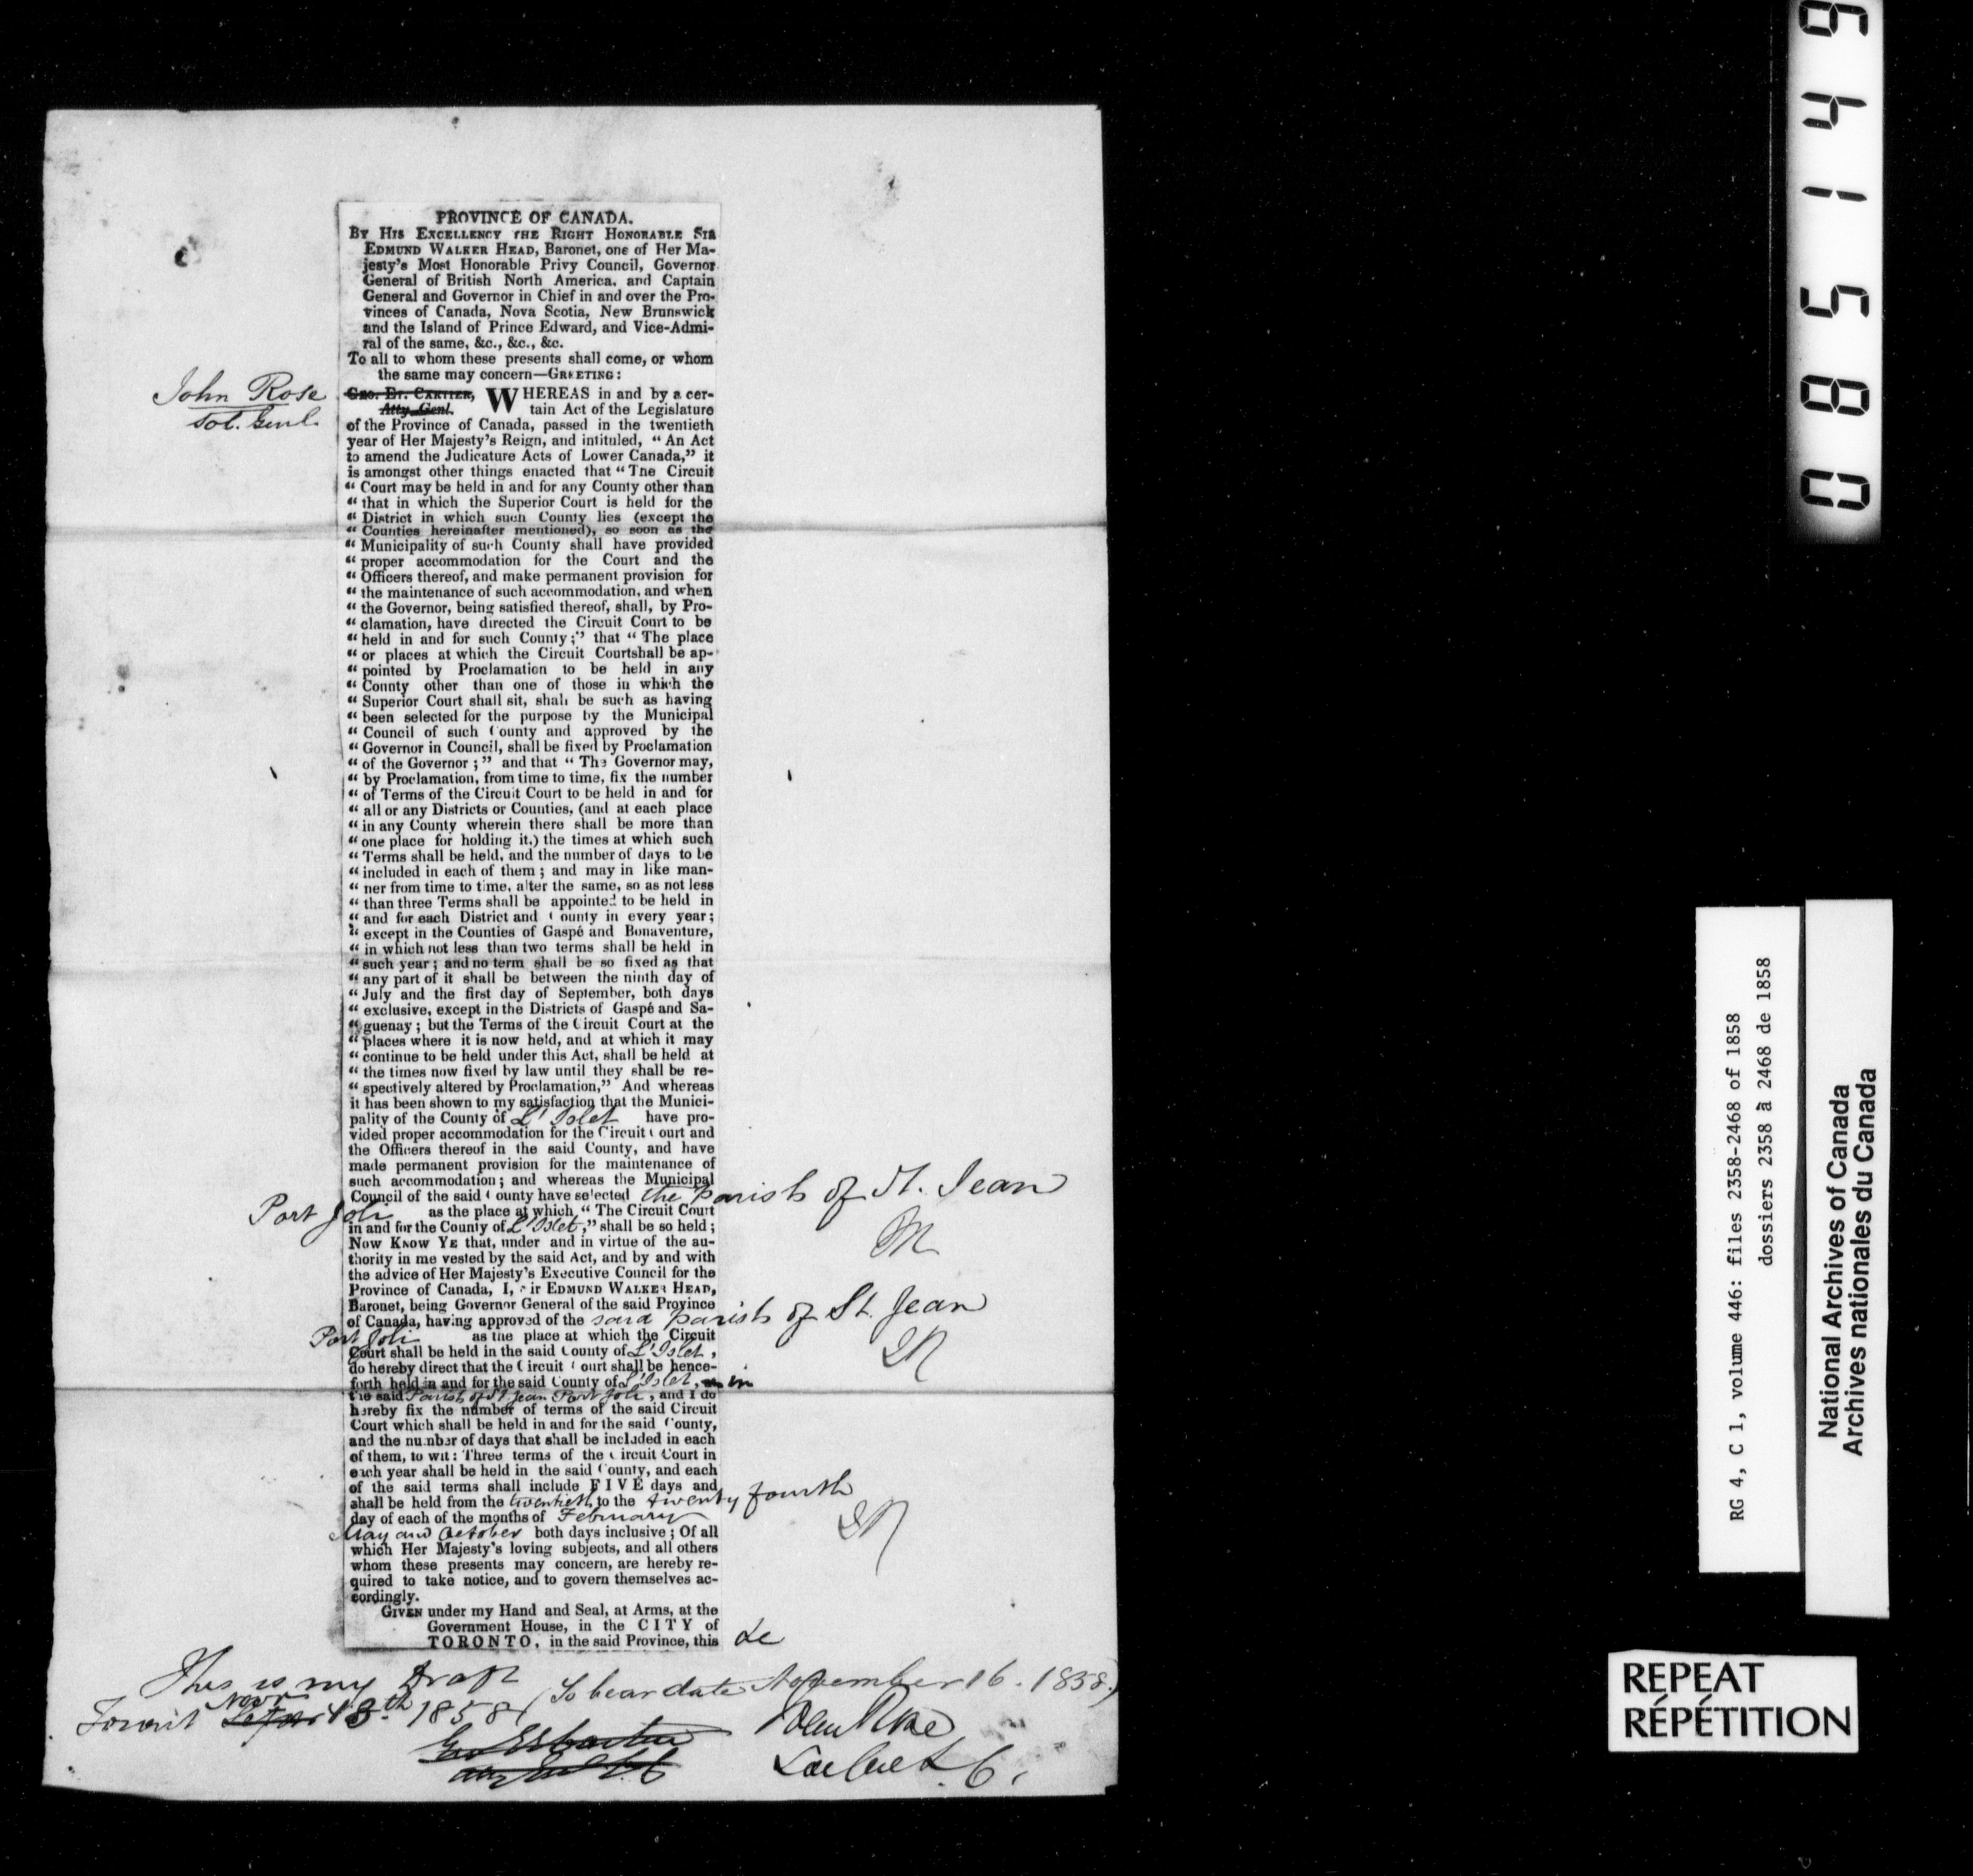 PROVINCE OF CANADA.
BY HIS EXCELLENCY THE RIGHT HONORABLE SIR
EDMUND WALKER HEAD, Baronet, one of Her Ma-
jesty's Most Honorable Privy Council, Governor
General of British North America, and Captain
General and Governor in Chief in and over the Pro-
vinces of Canada, Nova Scotia, New Brunswick
and the Island of Prince Edward, and Vice-Admi-
ral of the same, &c., &c., &c.
To all to whom these presents shall come, or whom
the same may concern—GREETING:
John Rose
Sol. Genl.
GEO. ET. CARTIER,
Atty. Genl.
WHEREAS in and by a cer-
tain Act of the Legislature
of the Province of Canada, passed in the twentieth
year of Her Majesty's Reign, and intituled, "An Act
to amend the Judicature Acts of Lower Canada," it
is amongst other things enacted that "The Circuit
" Court may be held in and for any County other than
" that in which the Superior Court is held for the
" District in which such County lies (except the
" Counties hereinafter mentioned), so soon as the
" Municipality of such County shall have provided
" proper accommodation for the Court and the
" Officers thereof, and make permanent provision for
" the maintenance of such accommodation, and when
" the Governor, being satisfied thereof, shall, by Pro-
" clamation, have directed the Circuit Court to be
" held in and for such County;" that "The place
" or places at which the Circuit Courtshall be ap-
" pointed by Proclamation to be held in any
" County other than one of those in which the
" Superior Court shall sit, shall be such as having
" been selected for the purpose by the Municipal
" Council of such County and approved by the
" Governor in Council, shall be fixed by Proclamation
" of the Governor;" and that "The Governor may,
" by Proclamation, from time to time, fix the number
" of Terms of the Circuit Court to be held in and for
" all or any Districts or Counties, (and at each place
" in any County wherein there shall be more than
" one place for holding it.) the times at which such
" Terms shall be held, and the number of days to be
" included in each of them; and may in like man-
" ner from time to time, alter the same, so as not less
" than three Terms shall be appointed to be held in
" and for each District and County in every year;
" except in the Counties of Gaspé and Bonaventure,
" in which not less than two terms shall be held in
" such year; and no term shall be so fixed as that
" any part of it shall be between the ninth day of
" July and the first day of September, both days
" exclusive, except in the Districts of Gaspé and Sa-
" guenay; but the Terms of the Circuit Court at the
" places where it is now held, and at which it may
" continue to be held under this Act, shall be held at
" the times now fixed by law until they shall be re-
" spectively altered by Proclamation," And whereas
it has been shown to my satisfaction that the Munici-
pality of the County of L'Islet have pro-
vided proper accommodation for the Circuit Court and
the Officers thereof in the said County, and have
made permanent provision for the maintenance of
such accommodation; and whereas the Municipal
Council of the said County have selected the parish of St. Jean
Port Joli as the place at which "The Circuit Court
in and for the County of L'Islet," shall be so held;
NOW KNOW YE that, under and in virtue of the au-
thority in me vested by the said Act, and by and with
the advice of Her Majesty's Executive Council for the
Province of Canada, I, Sir EDMUND WALKER HEAD,
Baronet, being Governor General of the said Province
of Canada, having approved of the said parish of St. Jean
Port Joli as the place at which the Circuit
JR
Court shall be held in the said County of L'Islet,
do hereby direct that the Circuit Court shall be hence-
forth held in and for the said County of L'Islet, in
the said Parish of St Jean Port Joli, and I do
hereby fix the number of terms of the said Circuit
Court which shall be held in and for the said County,
and the number of days that shall be included in each
of them, to wit: Three terms of the Circuit Court in
each year shall be held in the said County, and each
of the said terms shall include FIVE days and
shall be held from the twentieth to the twenty fourth
JR
day of each of the months of February
May and October both days inclusive; Of all
which Her Majesty's loving subjects, and all others
whom these presents may concern, are hereby re-
quired to take notice, and to govern themselves ac-
cordingly.
GIVEN under my Hand and Seal, at Arms, at the
Government House, in the CITY of
TORONTO, in the said Province, this &c
This is my Draft
(To bear date November 16. 1858.)
Toronto Novr 13th 1858
John Rose
Sol Genl L.C.
085149
RG 4, C 1, volume 446: files 2358-2468 of 1858
dossiers 2358 à 2468 de 1858
National Archives of Canada
Archives nationales du Canada
REPEAT
RÉPÉTITION